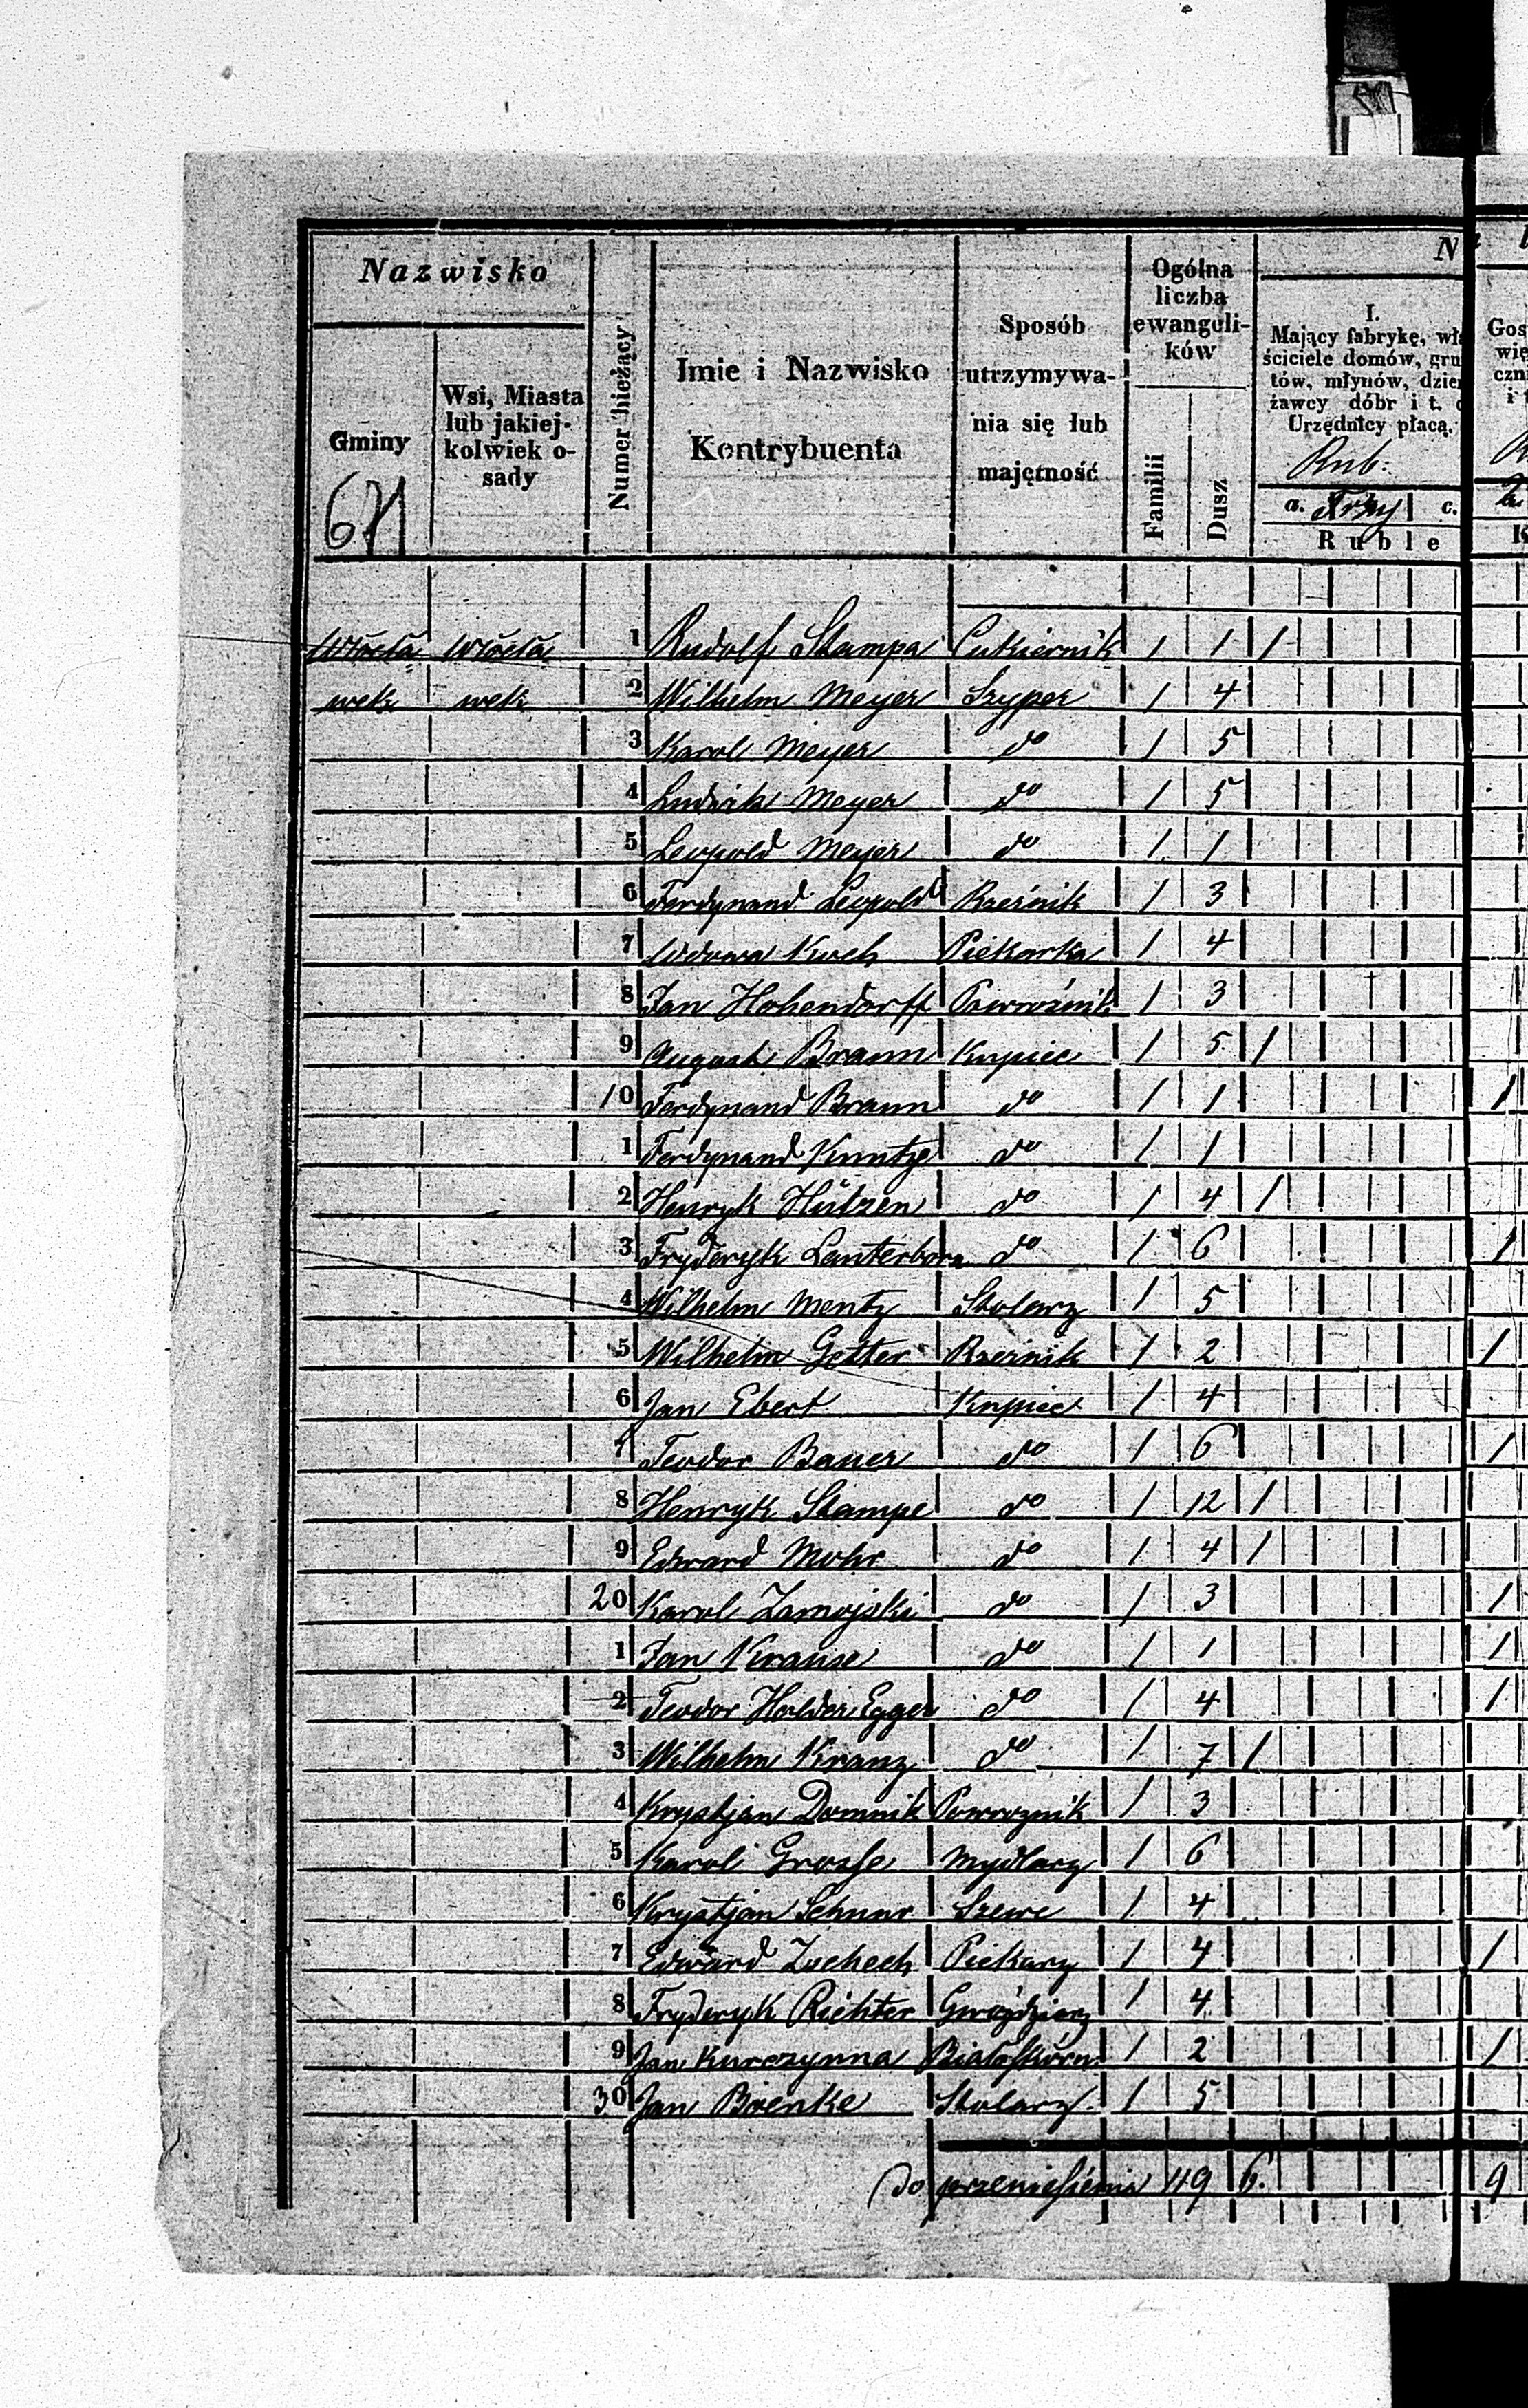 Nazwisko
Gminy
Wsi, Miasta lub jakiej-kolwiek o-sady
Numer bieżący
Imie i Nazwisko Kontrybuenta
Sposób utrzymywa-nia się lub majętność
Ogólna liczba ewangeli-ków
Familii
Dusz
I.
Mający fabrykę, wła
ściciele domów, grun
tów, młynów, dzier
żawcy dóbr i t. d
Urzędnicy płacą.
Rub:
a. Trzy c.
Ruble
671
Włocła Włocła 1 Rudolf Stampa Cukiernik 1 1 1
wek wek 2 Wilhelm Meyer Szyper 1 4
3 Karol Meyer do 1 5
4 Ludwik Meyer do 1 5
5 Leopold Meyer do 1 1
6 Ferdynand Leopold Rzeźnik 1 3
7 Wdowa Koch Piekarka 1 4
8 Jan Hohendorff Powroźnik 1 3
9 August Braun Kupiec 1 5 1
10 Ferdynand Braun do 1 1 1
1 Ferdynand Kuntze do 1 1
2 Henryk Hützen do 1 4 1
3 Fryderyk Lauterborn do 1 6 1
4 Wilhelm Mentz Stolarz 1 5
5 Wilhelm Getter Rzeźnik 1 2 1
6 Jan Ebert Kupiec 1 4
7 Teodor Bauer do 1 6 1
8 Henryk Stampe do 1 12 1
9 Edward Mohr do 1 4 1
20 Karol Zamojski do 1 3 1
1 Jan Krause do 1 1 1
2 Teodor Holder Egger do 1 4 1
3 Wilhelm Kranz do 1 7 1
4 Krystjan Domnik Powroznik 1 3
5 Karol Grosse Mydlarz 1 6
6 Krystjan Schnur Szewc 1 4
7 Edward Zochech Piekarz 1 4 1
8 Fryderyk Richter Gwoździarz 1 4
9 Jan Kurczynna Białoskórn. 1 2 1
30 Jan Boenke Stolarz 1 5
Do przeniesienia 119 6. 9